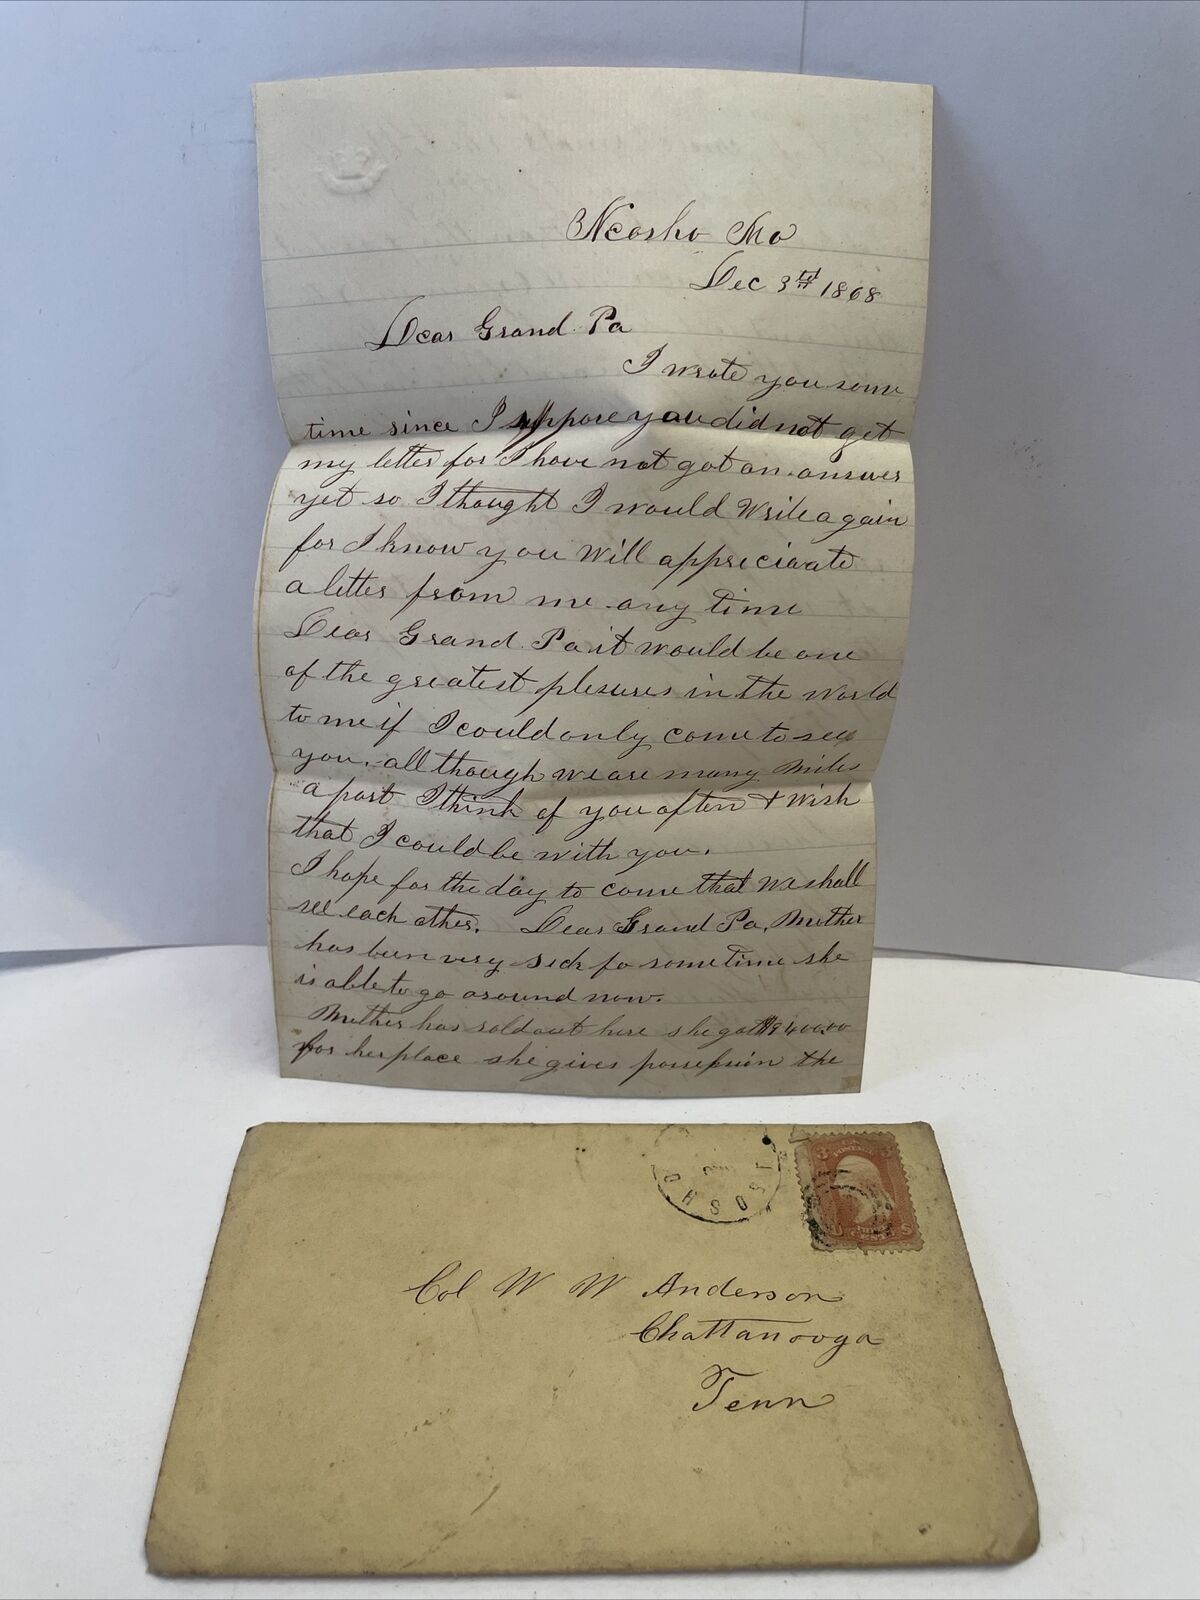 Neosho Mo
Dec 3rd 1868
Dear Grand Pa
I wrote you some
time since I suppose you did not get
my letter for I have not got an answer
yet so I thought I would Write again
for I know you Will appreciaate
a letter from me any time
Dear Grand Pa it would be one
of the greatest plesures in the World
to me if I could only come to see
you. all though we are many Miles
apart I think of you often & Wish
that I could be with you.
I hope for the day to come that We shall
see each other. Dear Grand Pa, Mother
has been very sick fo some time she
is able to go around now.
Mother has sold out here she got
for her place she gives possession the
3 U.S. POSTAGE 3
NEOSHO
Col W W Anderson
Chattanooga
Tenn